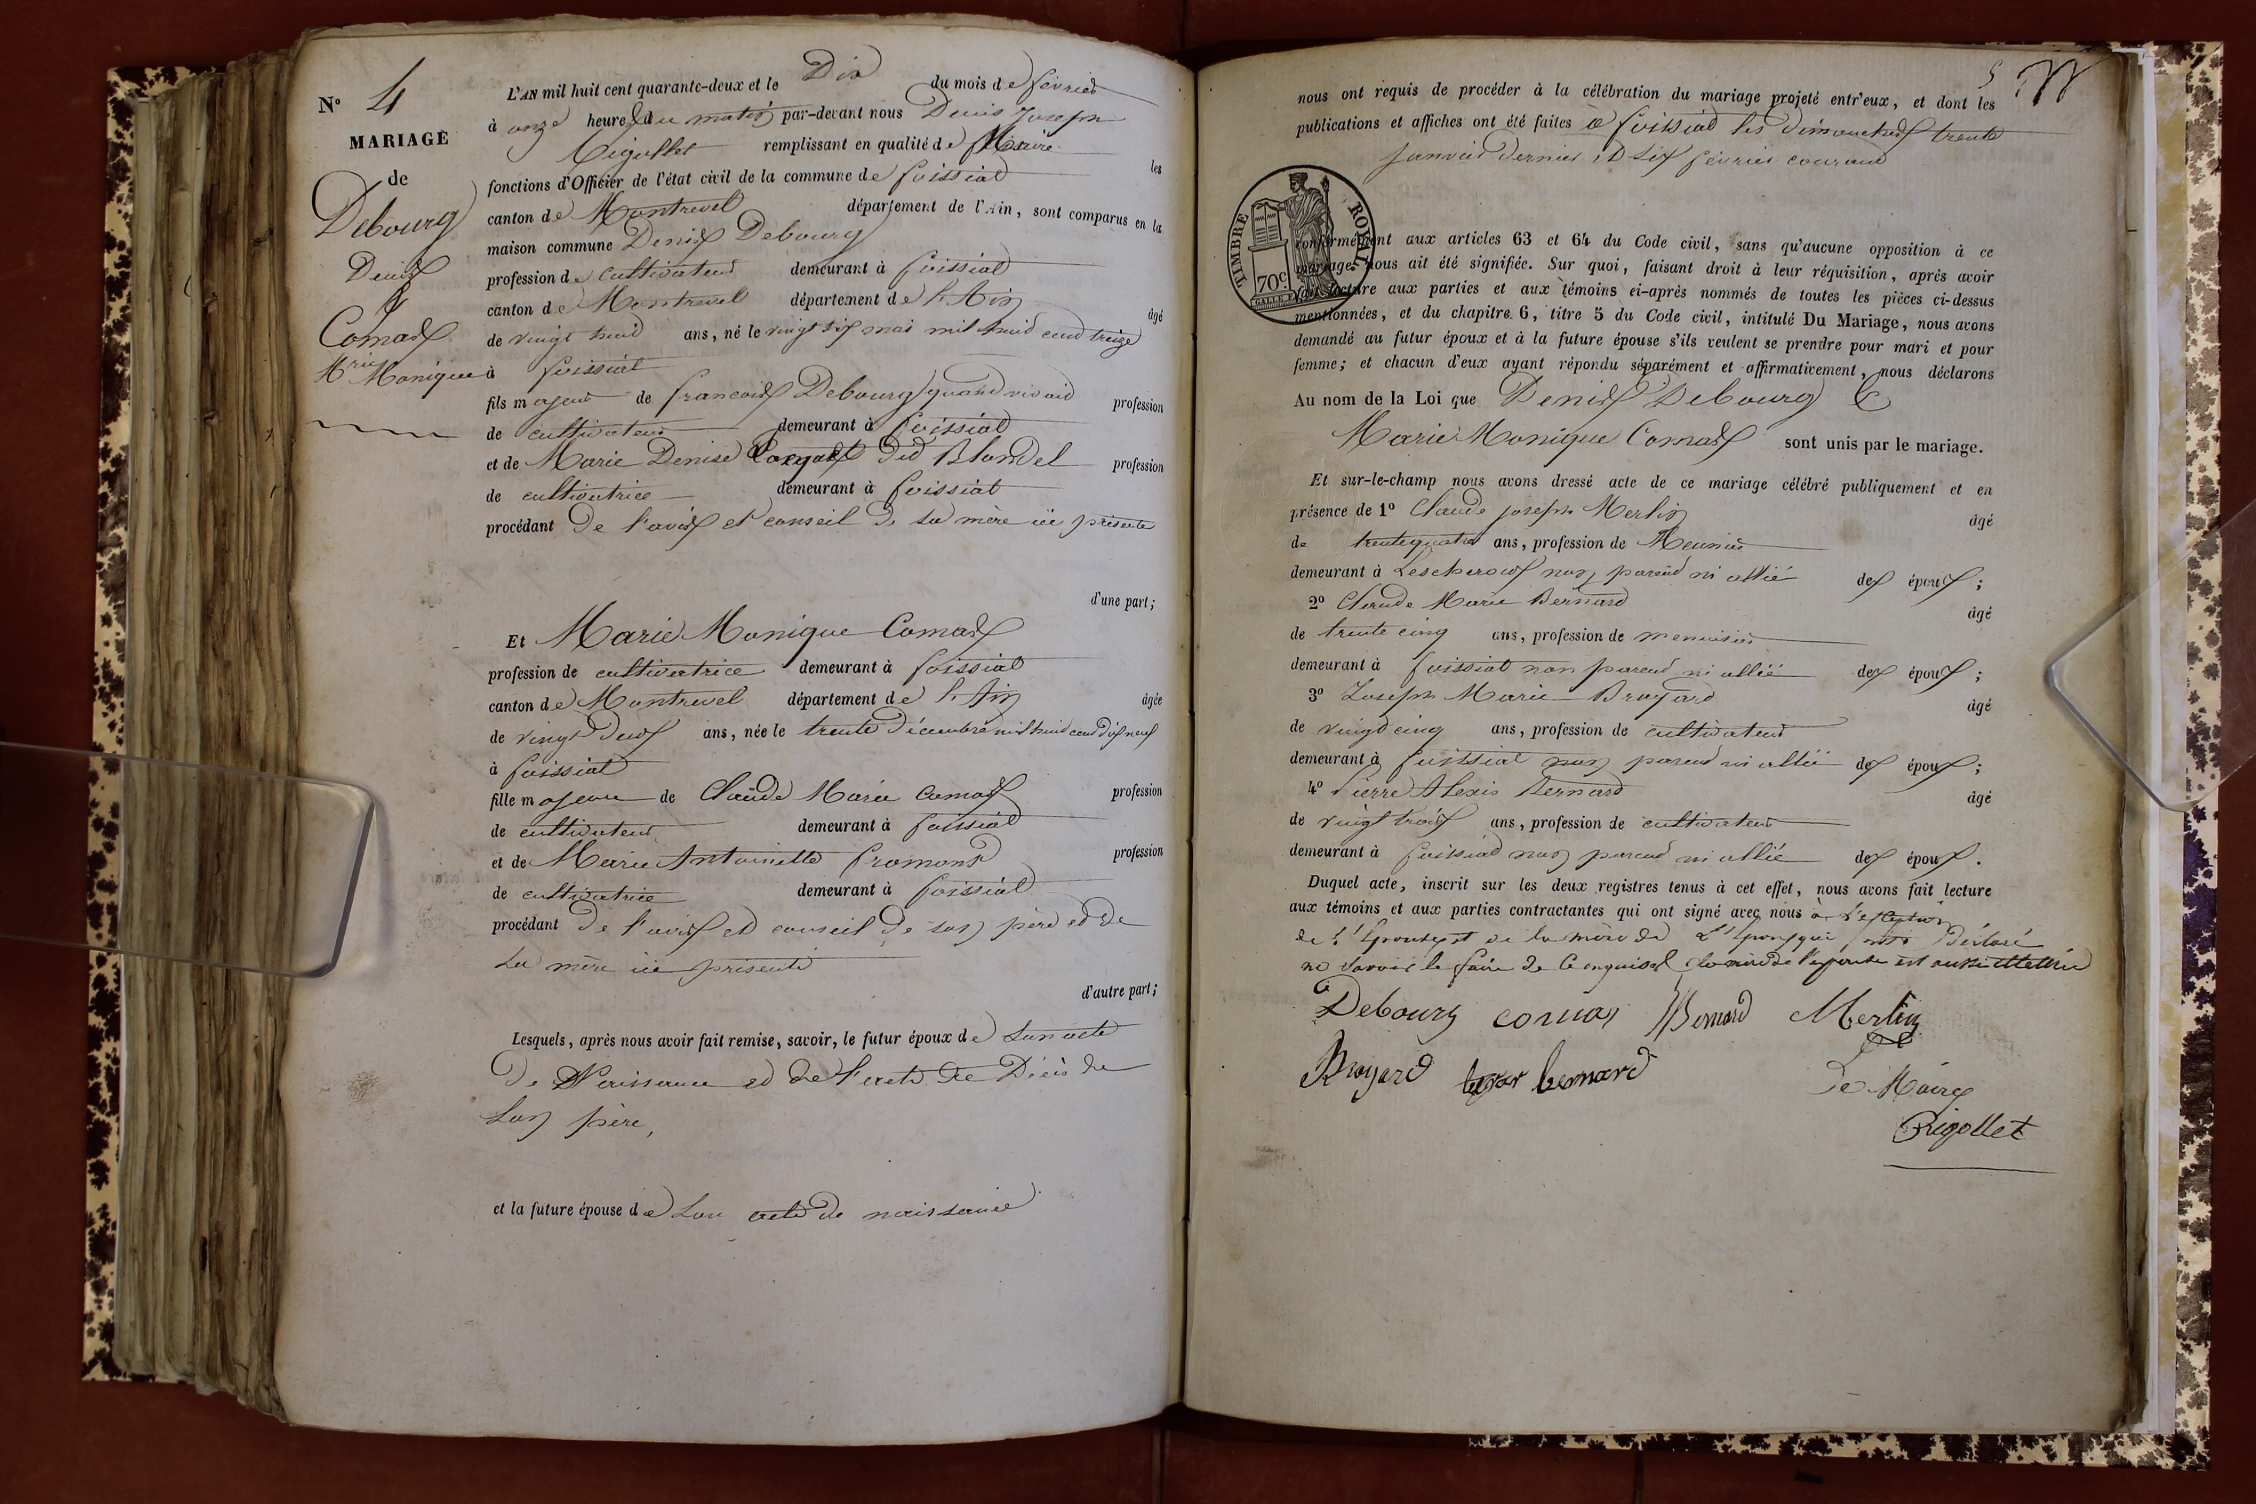 N° 4
MARIAGE
de
Debourg
Denis
&
Comas
Mrie Monique
L'AN mil huit cent quarante-deux et le Dix du mois de février
à onze heures du matin par-devant nous Denis Joseph
Rigollet remplissant en qualité de Maire les
fonctions d'Officier de l'état civil de la commune de foissiat
canton de Montrevel département de l'Ain, sont comparus en la
maison commune Denis Debourg
profession de cultivateur demeurant à foissiat
canton de Montrevel département de l'Ain âgé
de vingt huit ans, né le vingt six mai mil huit cent treize
à foissiat
fils majeur de francois Debourg quand vivait profession
de cultivateur demeurant à foissiat
et de Marie Denise dit Blondel profession
de cultivatrice demeurant à foissiat
procédant de l'avis et conseil de sa mère ici présente
d'une part;
Et Marie Monique Comas
profession de cultivatrice demeurant à foissiat
canton de Montrevel département de l'Ain âgée
de vingt deux ans, née le trente Décembre mil huit cent dix neuf
à foissiat
fille majeure de Claude Marie Comas profession
de cultivateur demeurant à foissiat
et de Marie Antoinette fromont profession
de cultivatrice demeurant à foissiat
procédant de l'avis et conseil de son père et de
sa mère ici présents
d'autre part;
Lesquels, après nous avoir fait remise, savoir, le futur époux de son acte
de Naissance et de l'acte de Décès de
son père,
et la future épouse de son acte de naissance
5
nous ont requis de procéder à la célébration du mariage projeté entr'eux, et dont les
publications et affiches ont été faites à foissiat les dimanches trente
janvier dernier et six février courant
TIMBRE ROYAL
70c.
conformément aux articles 63 et 64 du Code civil, sans qu'aucune opposition à ce
mariage nous ait été signifiée. Sur quoi, faisant droit à leur réquisition, après avoir
fait lecture aux parties et aux témoins ci-après nommés de toutes les pièces ci-dessus
mentionnées, et du chapitre 6, titre 5 du Code civil, intitulé Du Mariage, nous avons
demandé au futur époux et à la future épouse s'ils veulent se prendre pour mari et pour
femme; et chacun d'eux ayant répondu séparément et affirmativement, nous déclarons
Au nom de la Loi que Denis Debourg &
Marie Monique Comas sont unis par le mariage.
Et sur-le-champ nous avons dressé acte de ce mariage célébré publiquement et en
présence de 1° Claude joseph Merlin âgé
de trente quatre ans, profession de Meunier
demeurant à Lescheroux non parent ni allié des époux;
2° Claude Marie Bernard âgé
de trente cinq ans, profession de menuisier
demeurant à foissiat non parent ni allié des époux;
3° Joseph Marie Broyard âgé
de vingt cinq ans, profession de cultivateur
demeurant à foissiat non parent ni allié des époux;
4° Pierre Alexis Bernard âgé
de vingt trois ans, profession de cultivateur
demeurant à foissiat non parent ni allié des époux.
Duquel acte, inscrit sur les deux registres tenus à cet effet, nous avons fait lecture
aux témoins et aux parties contractantes qui ont signé avec nous à l'exception
de l'épouse et de la mère de l'époux qui ont Déclaré
ne savoir le faire de ce enquises la mère de l'épouse est aussi illettrée
Debourg comas Bernard Merlin
Broyard bernard Le Maire
Rigollet